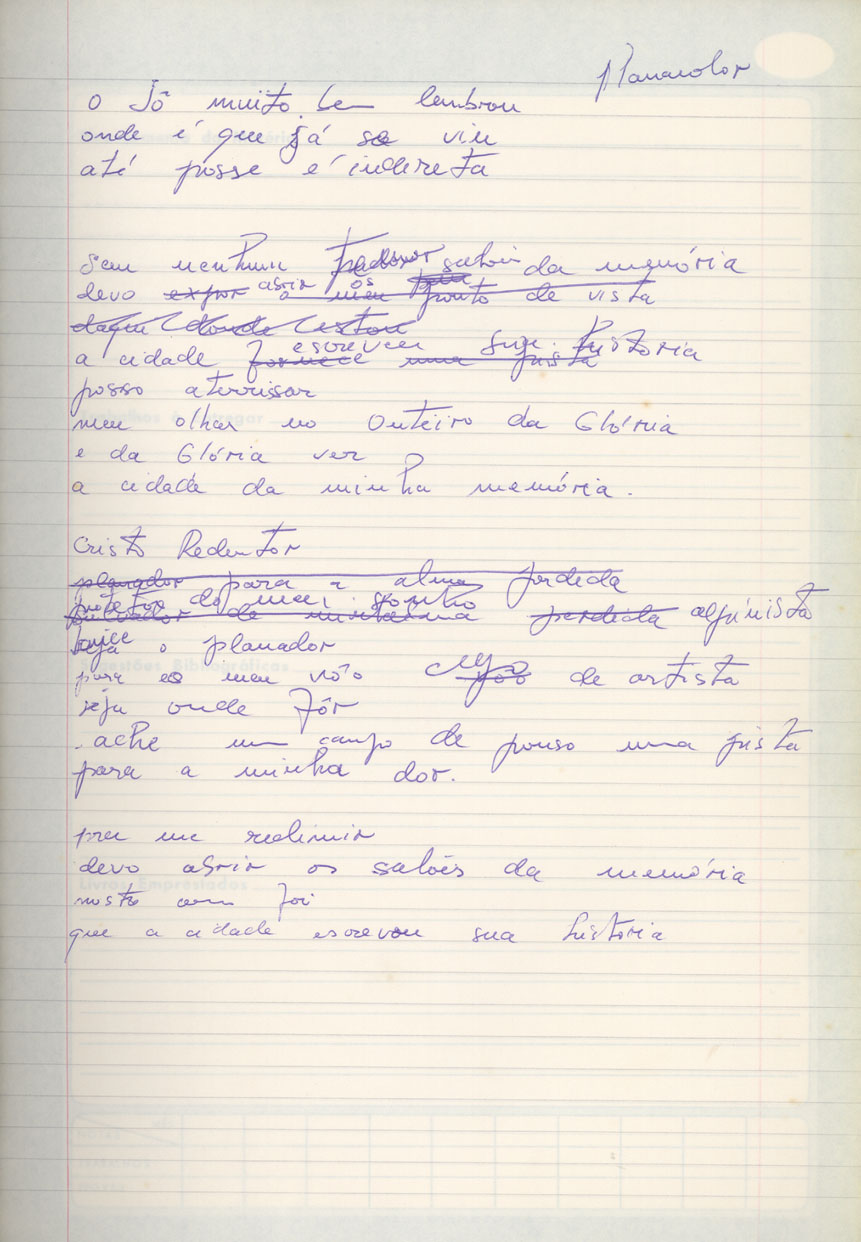 Planador
o Jô muito bem lembrou
onde é que já se viu
até posse é indireta
Sem nenhum salões da memória
devo expor abrir os o meu ponto de vista
daqui donde estou
a cidade fornece escreveu uma justa sua história
posso aterrissar
meu olhar no Outeiro da Glória
e da Glória ver
a cidade da minha memória.
Cristo Redentor
planador para a alma perdida
do meu sonho
de minh'alma perdida alpinista
seja o planador
para o meu vôo de artista
seja onde fôr
ache um campo de pouso uma pista
para a minha dor.
pra me redimir
devo abrir os salões da memória
mostrar como foi
que a cidade escreveu sua história
Sugestões Bibliográficas
Livros Emprestados